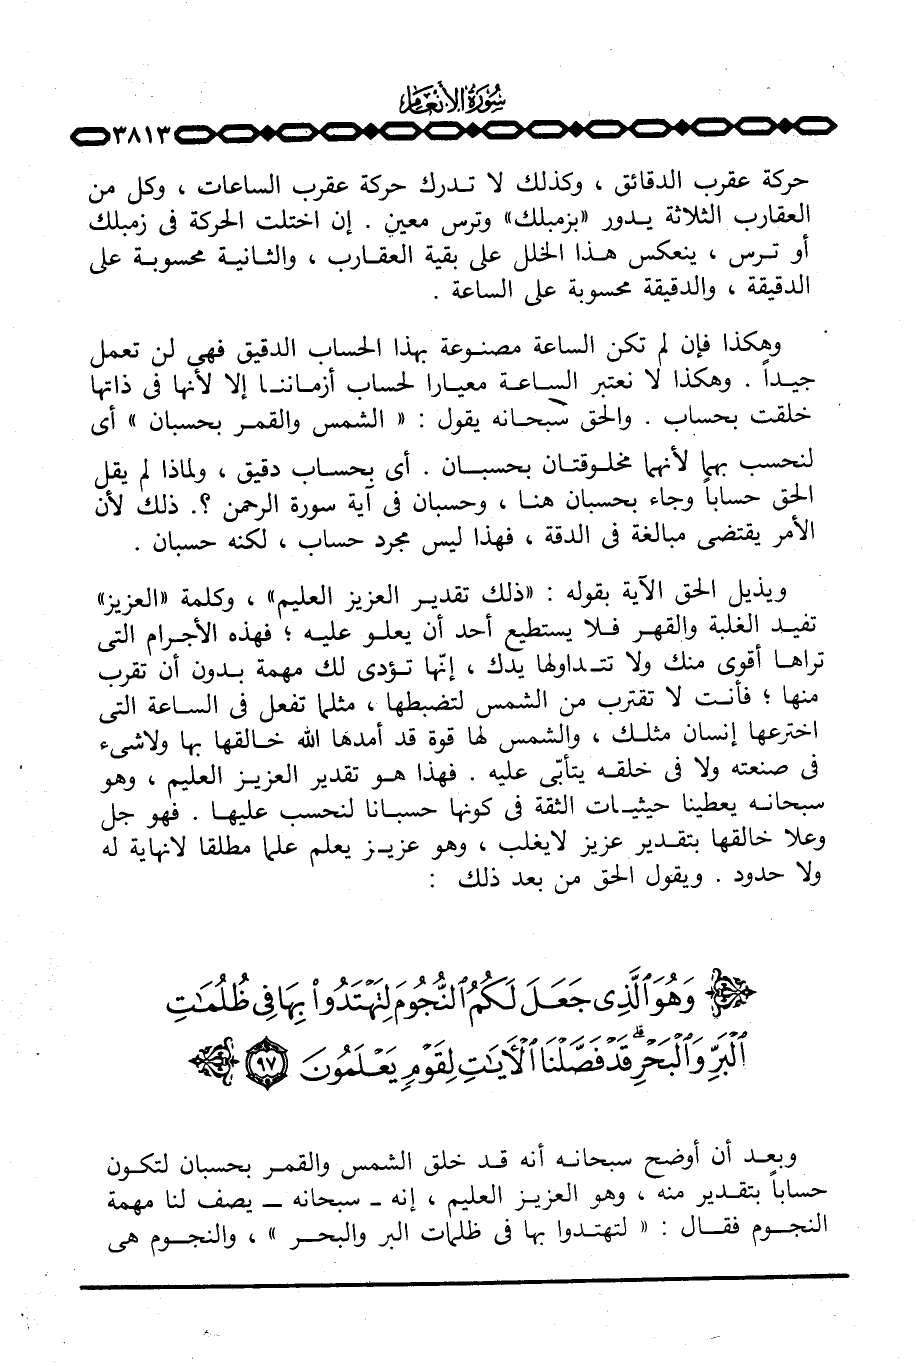 سورة الأنعام
٣٨١٣
حركة عقرب الدقائق ، وكذلك لا تدرك حركة عقرب الساعات ، وكل من
العقارب الثلاثة يدور «بزمبلك» وترس معين . إن اختلت الحركة فى زمبلك
أو ترس ، ينعكس هذا الخلل على بقية العقارب ، والثانية محسوبة على
الدقيقة ، والدقيقة محسوبة على الساعة .
وهكذا فإن لم تكن الساعة مصنوعة بهذا الحساب الدقيق فهى لن تعمل
جيداً . وهكذا لا نعتبر الساعة معيارا لحساب أزماننا إلا لأنها فى ذاتها
خلقت بحساب . والحق سبحانه يقول : « الشمس والقمر بحسبان » أى
لنحسب بهما لأنهما مخلوقتان بحسبان . أى بحساب دقيق ، ولماذا لم يقل
الحق حساباً وجاء بحسبان هنا ، وحسبان فى آية سورة الرحمن ؟. ذلك لأن
الأمر يقتضى مبالغة فى الدقة ، فهذا ليس مجرد حساب ، لكنه حسبان .
ويذيل الحق الآية بقوله : «ذلك تقدير العزيز العليم» ، وكلمة «العزيز»
تفيد الغلبة والقهر فلا يستطيع أحد أن يعلو عليه ؛ فهذه الأجرام التى
تراها أقوى منك ولا تتداولها يدك ، إنّها تؤدى لك مهمة بدون أن تقرب
منها ؛ فأنت لا تقترب من الشمس لتضبطها ، مثلما تفعل فى الساعة التى
اخترعها إنسان مثلك ، والشمس لها قوة قد أمدها الله خالقها بها ولاشىء
فى صنعته ولا فى خلقه يتأبّى عليه . فهذا هو تقدير العزيز العليم ، وهو
سبحانه يعطينا حيثيات الثقة فى كونها حسبانا لنحسب عليها . فهو جل
وعلا خالقها بتقدير عزيز لايغلب ، وهو عزيز يعلم علما مطلقا لانهاية له
ولا حدود . ويقول الحق من بعد ذلك :
وَهُوَ ٱلَّذِى جَعَلَ لَكُمُ ٱلنُّجُومَ لِتَهْتَدُوا۟ بِهَا فِى ظُلُمَٰتِ
ٱلْبَرِّ وَٱلْبَحْرِ ۗ قَدْ فَصَّلْنَا ٱلْأَيَٰتِ لِقَوْمٍ يَعْلَمُونَ ٩٧
وبعد أن أوضح سبحانه أنه قد خلق الشمس والقمر بحسبان لتكون
حساباً بتقدير منه ، وهو العزيز العليم ، إنه ـ سبحانه ـ يصف لنا مهمة
النجوم فقال : « لتهتدوا بها فى ظلمات البر والبحر » ، والنجوم هى